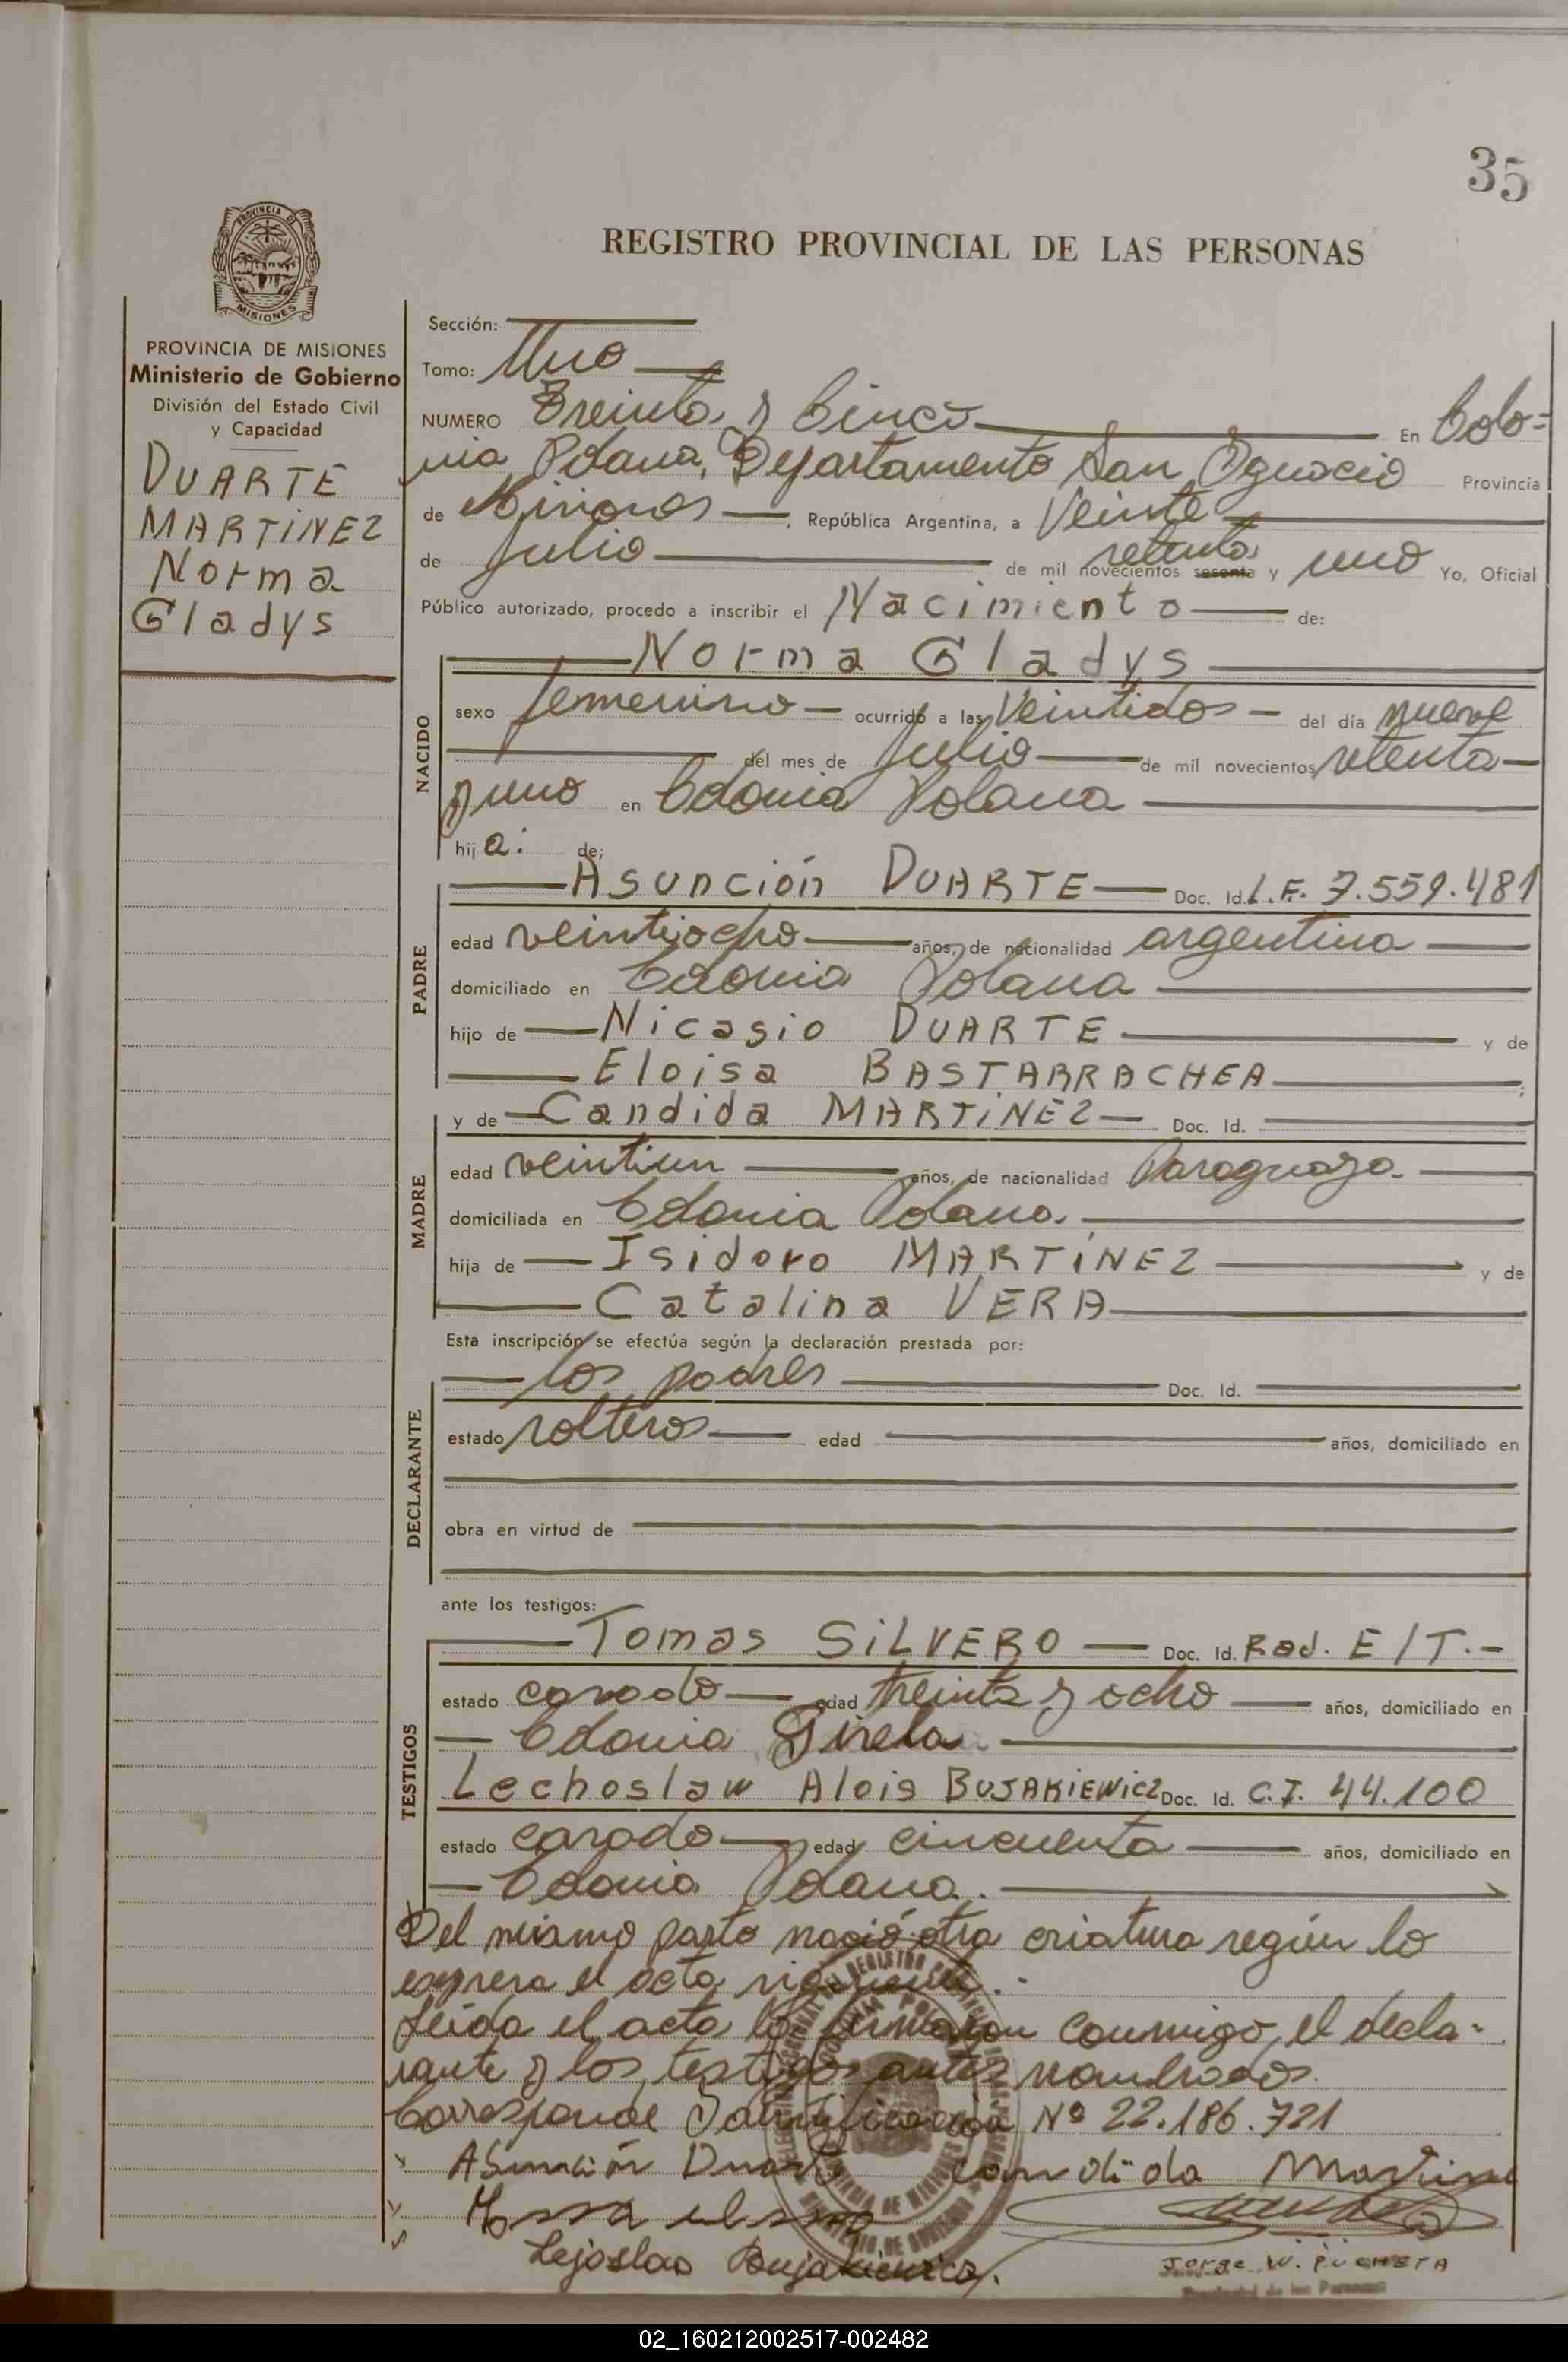 35
REGISTRO PROVINCIAL DE LAS PERSONAS
PROVINCIA DE
MISIONES
PROVINCIA DE MISIONES
Ministerio de Gobierno
División del Estado Civil
y Capacidad
DUARTE
MARTINEZ
Norma
Gladys
Sección:
Tomo: Uno
NUMERO Treinta y Cinco En Colo=
nia Polana, Departamento San Ignacio Provincia
de Misiones, República Argentina, a Veinte
de Julio de mil novecientos sesenta setenta y uno Yo, Oficial
Público autorizado, procedo a inscribir el Nacimiento de:
Norma Gladys
NACIDO
sexo femenino ocurrido a las Veintidos del día nueve
del mes de Julio de mil novecientos setenta
y uno en Colonia Polana
hija: de:
PADRE
Asunción DUARTE Doc. Id. L.E. 7.559.481
edad veintiocho años, de nacionalidad argentina
domiciliado en Colonia Polana
hijo de Nicasio DUARTE y de
Eloisa BASTARRACHEA ;
MADRE
y de Candida MARTINEZ Doc. Id.
edad veintiun años, de nacionalidad Paraguaya.
domiciliada en Colonia Polana.
hija de Isidoro MARTINEZ y de
Catalina VERA
Esta inscripción se efectúa según la declaración prestada por:
DECLARANTE
los padres Doc. Id.
estado solteros edad años, domiciliado en
obra en virtud de
ante los testigos:
TESTIGOS
Tomas SILVERO Doc. Id. Rad. E/T.-
estado casado edad treinta y ocho años, domiciliado en
Colonia Gisela
Lechoslaw Alois BUJAKIEWICZ Doc. Id. C.I. 44.100
estado casado edad cincuenta años, domiciliado en
Colonia Polana.
Del mismo parto nació otra criatura según lo
expresa el acta siguiente.-
Leida el acta la firmaron conmigo, el decla-
rante y los testigos antes nombrados.
Corresponde Identificación Nº 22.186.721
Asunción Duarte Candida Martinez
Lejoslao Bujakiewicz.
Jorge W. PUCHETA
02_160212002517-002482